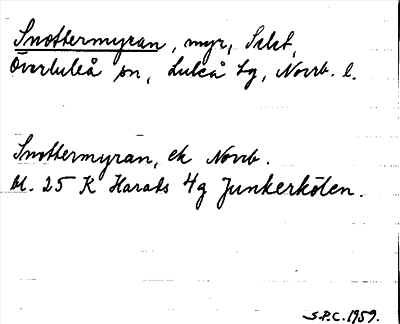 Snottermyran, myr,
Överluleå sn, Luleå tg, Norrb. l.
Snottermyran, ek Norrb.
bl. 25 K Harads 4g Junkerkölen.
S.P.C. 1959.